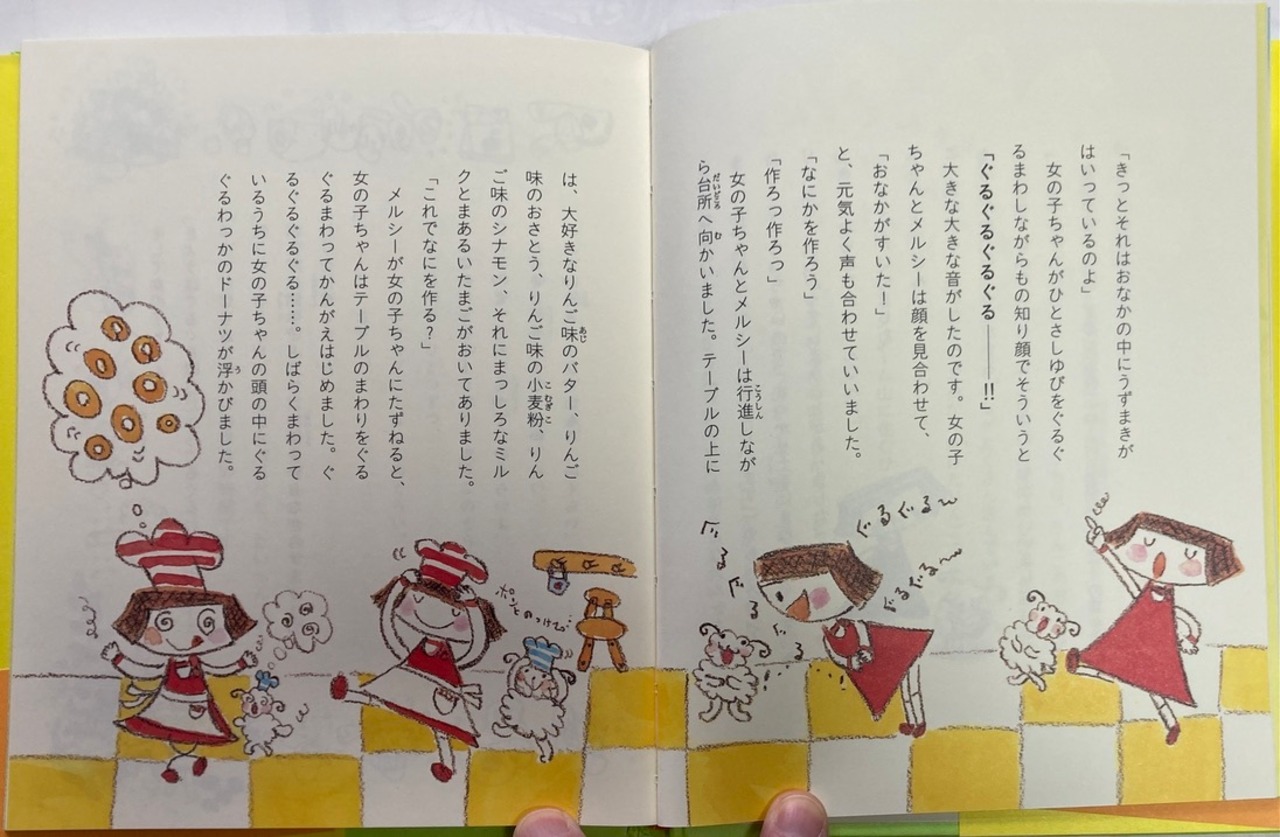 「きっとそれはおなかの中にうずまきが
はいっているのよ」
女の子ちゃんがひとさしゆびをぐるぐ
るまわしながらもの知り顔でそういうと
「ぐるぐるぐるぐる――!!」
大きな大きな音がしたのです。女の子
ちゃんとメルシーは顔を見合わせて、
「おなかがすいた!」
と、元気よく声も合わせていいました。
「なにかを作ろう」
「作ろっ作ろっ」
女の子ちゃんとメルシーは行進しなが
ら台所へ向かいました。テーブルの上に
ぐるぐる〜
ぐるぐる〜
ぐるぐるぐる
は、大好きなりんご味のバター、りんご
味のおさとう、りんご味の小麦粉、りん
ご味のシナモン、それにまっしろなミル
クとまあるいたまごがおいてありました。
「これでなにを作る?」
メルシーが女の子ちゃんにたずねると、
女の子ちゃんはテーブルのまわりをぐる
ぐるまわってかんがえはじめました。ぐ
るぐるぐるぐる……。しばらくまわって
いるうちに女の子ちゃんの頭の中にぐる
ぐるわっかのドーナツが浮かびました。
ポンとのっけて…